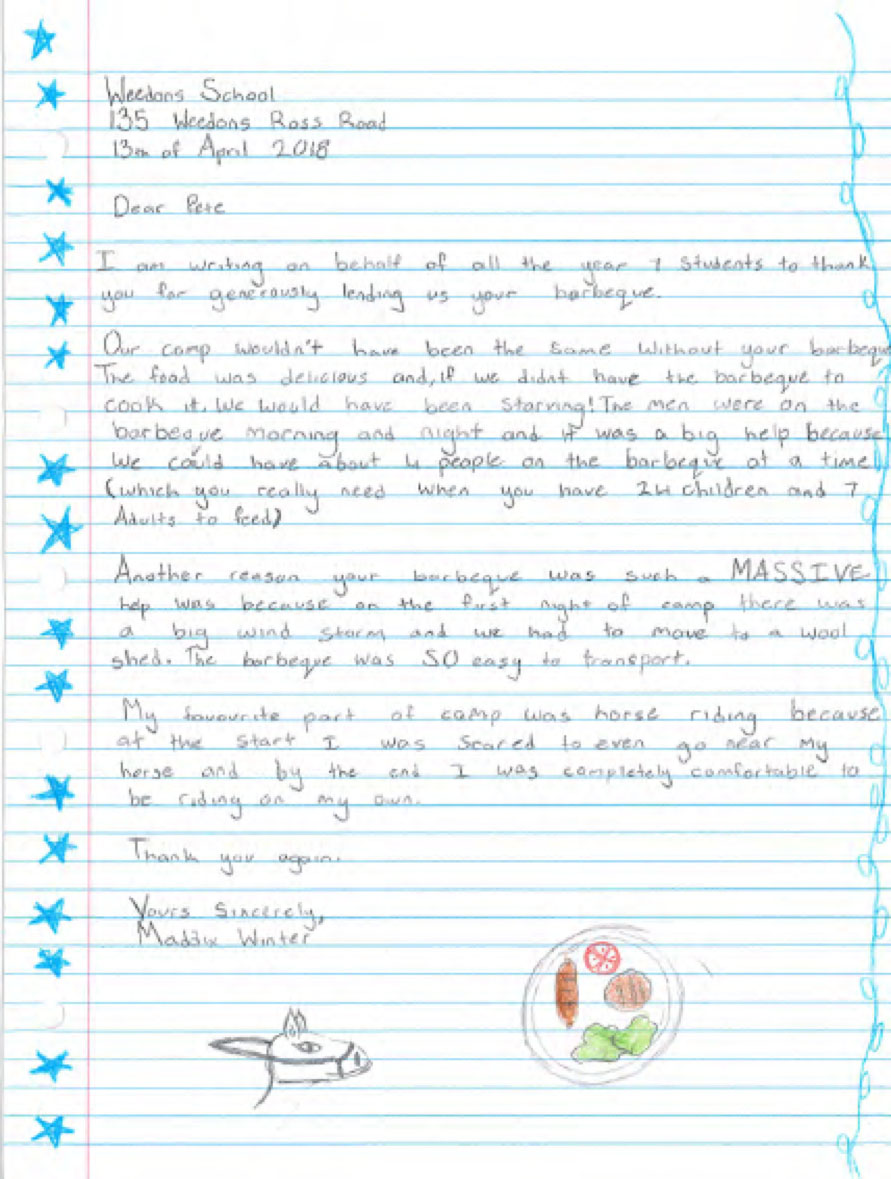 Weedons School
135 Weedons Ross Road
13th of April 2018
Dear Pete
I am writing on behalf of all the year 7 Students to thank
you for generously lending us your barbeque.
Our camp wouldn't have been the same without your barbeque
The food was delicious and, if we didnt have the barbeque to
cook it, we would have been starving! The men were on the
barbeque morning and night and it was a big help because
we could have about 4 people on the barbeque at a time
(which you really need when you have 24 children and 7
Adults to feed)
Another reason your barbeque was such a MASSIVE
help was because on the first night of camp there was
a big wind storm and we had to move to a wool
shed. The barbeque was SO easy to transport.
My favourite part of camp was horse riding because
at the start I was scared to even go near my
horse and by the end I was completely comfortable to
be riding on my own.
Thank you again.
Yours Sincerely,
Maddix Winter